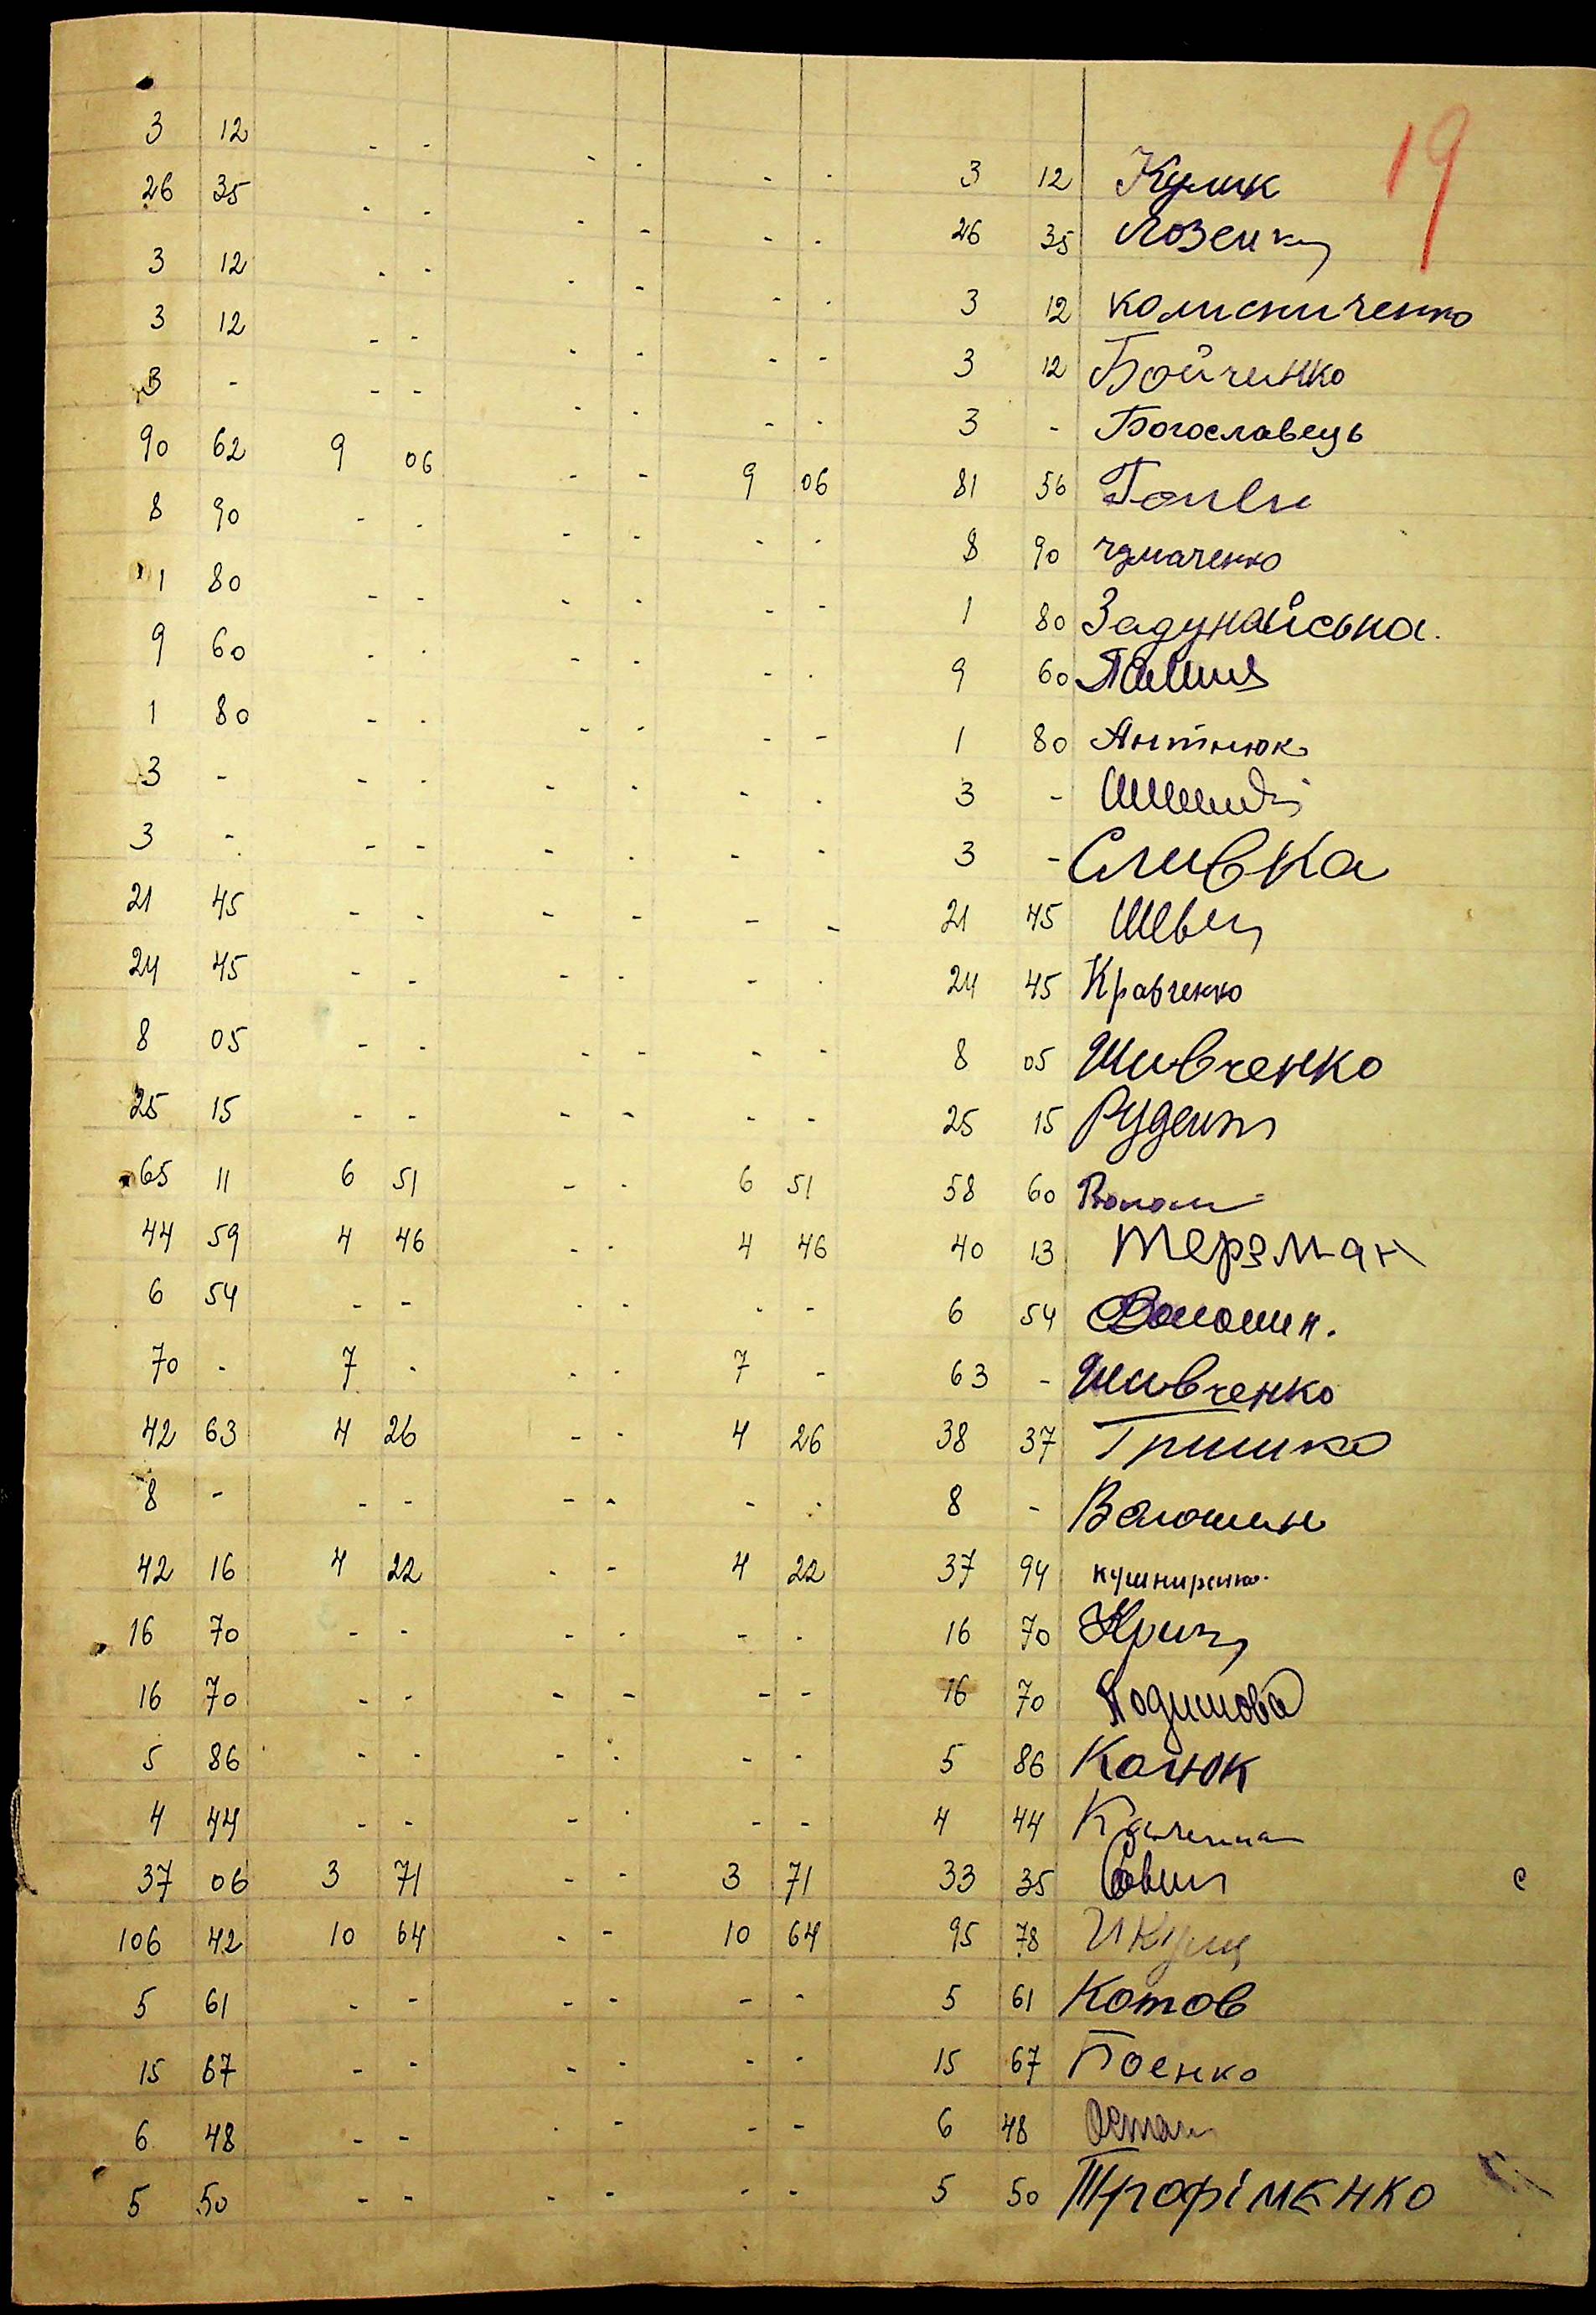 19
3 12 - - - - - - 3 12 Кулик
26 35 - - - - - - 26 35
3 12 - - - - - - 3 12 колисниченко
3 12 - - - - - - 3 12 Бойченко
3 - - - - - - - 3 - Богославець
90 62 9 06 - - 9 06 81 56
8 90 - - - - - - 8 90 чумаченко
1 80 - - - - - - 1 80 Задунайська.
9 60 - - - - - - 9 60
1 80 - - - - - - 1 80 Антнюк
3 - - - - - - - 3 -
3 - - - - - - - 3 - Сливка
21 45 - - - - - - 21 45 Швец
24 45 - - - - - - 24 45 Кравченко
8 05 - - - - - - 8 05 Шивченко
25 15 - - - - - - 25 15 Руденко
65 11 6 51 - - 6 51 58 60
44 59 4 46 - - 4 46 40 13 Терзман
6 54 - - - - - - 6 54 Волошин.
70 - 7 - - - 7 - 63 - Шивченко
42 63 4 26 - - 4 26 38 37 Гришко
8 - - - - - - - 8 - Волошин
42 16 4 22 - - 4 22 37 94 кушниренко.
16 70 - - - - - - 16 70
16 70 - - - - - - 16 70
5 86 - - - - - - 5 86 Канюк
4 44 - - - - - - 4 44
37 06 3 71 - - 3 71 33 35 с
106 42 10 64 - - 10 64 95 78
5 61 - - - - - - 5 61 Котов
15 67 - - - - - - 15 67 Боенко
6 48 - - - - - - 6 48
5 50 - - - - - - 5 50 Трофіменко